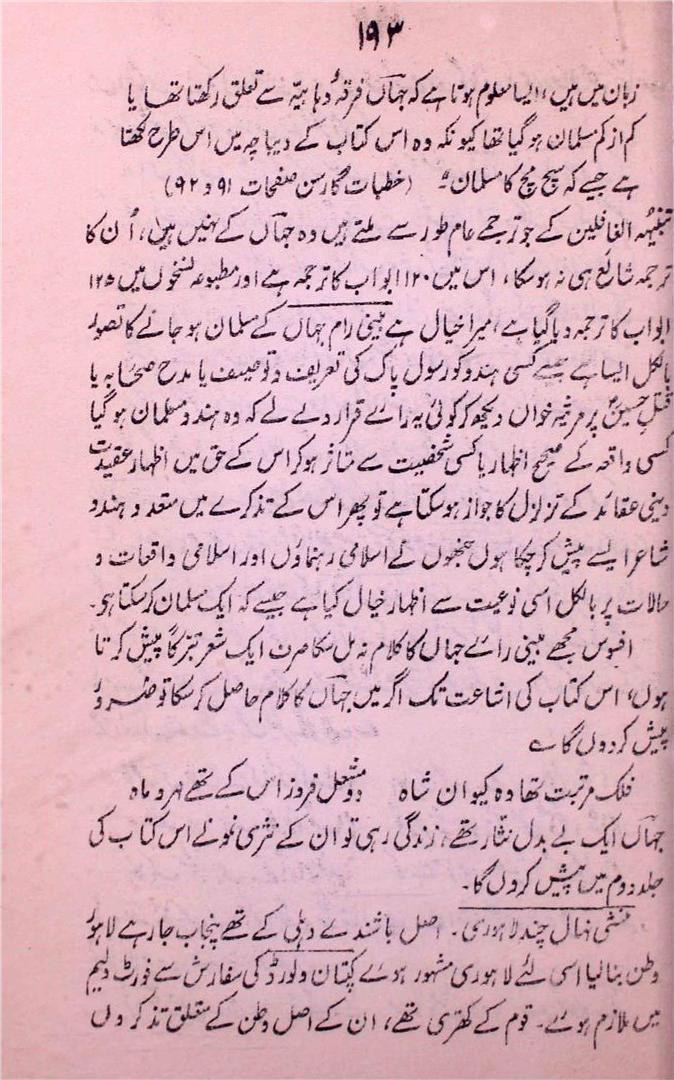 ۱۹۳
زبان میں ہیں، ایسا معلوم ہوتا ہے کہ جہاں فرقۂ وہابیہ سے تعلق رکھتا تھا یا
کم از کم مسلمان ہو گیا تھا کیونکہ وہ اس کتاب کے دیباچہ میں اس طرح لکھتا
ہے جیسے کہ سچ مچ کا مسلمان"۔ (خطبات گارسن صفحات ۹۱ و ۹۲)
تنبیہہ الغافلین کے جو ترجمے عام طور سے ملتے ہیں وہ جہاں کے نہیں ہیں، اُن کا
ترجمہ شائع ہی نہ ہو سکا، اس میں ۱۲۰ ابواب کا ترجمہ ہے اور مطبوعہ نسخوں میں ۱۲۵
ابواب کا ترجمہ دیا گیا ہے، میرا خیال ہے بینی رام جہاں کے مسلمان ہو جانے کا تصور
بالکل ایسا ہے جیسے کسی ہندو کو رسول پاک کی تعریف و توصیف یا مدح صحابہ یا
قتلِ حسینؑ پر مرثیہ خواں دیکھ کر کوئی یہ رائے قرار دے لے کہ وہ ہندو مسلمان ہو گیا
کسی واقعہ کے صحیح اظہار یا کسی شخصیت سے متاثر ہو کر اس کے حق میں اظہار عقیدت
دینی عقائد کے تزلزل کا جواز ہو سکتا ہے تو پھر اس کے تذکرے میں متعدد ہندو
شاعر ایسے پیش کر چکا ہوں جنھوں نے اسلامی رہنماؤں اور اسلامی واقعات و
حالات پر بالکل اسی نوعیت سے اظہار خیال کیا ہے جیسے کہ ایک مسلمان کر سکتا ہو۔
افسوس مجھے بینی رائے جہاں کا کلام نہ مل سکا صرف ایک شعر تبرکاً پیش کرتا
ہوں، اس کتاب کی اشاعت تک اگر میں جہاں کا کلام حاصل کر سکا تو ضرور
پیش کر دوں گا ؎
فلک مرتبت تھا وہ کیواں شاہ دو مشعل فروز اس کے تھے مہر و ماہ
جہاں ایک بے بدل نثار تھے، زندگی رہی تو ان کے نثری نمونے اس کتاب کی
جلد دوم میں پیش کروں گا۔
منشی نہال چند لاہوری۔ اصل باشندے دہلی کے تھے پنجاب جا رہے لاہور
وطن بنا لیا اسی لئے لاہوری مشہور ہوئے کپتان ولورڈ کی سفارش سے فورٹ ولیم
میں ملازم ہوئے۔ قوم کے کھتری تھے، ان کے اصل وطن کے متعلق تذکروں